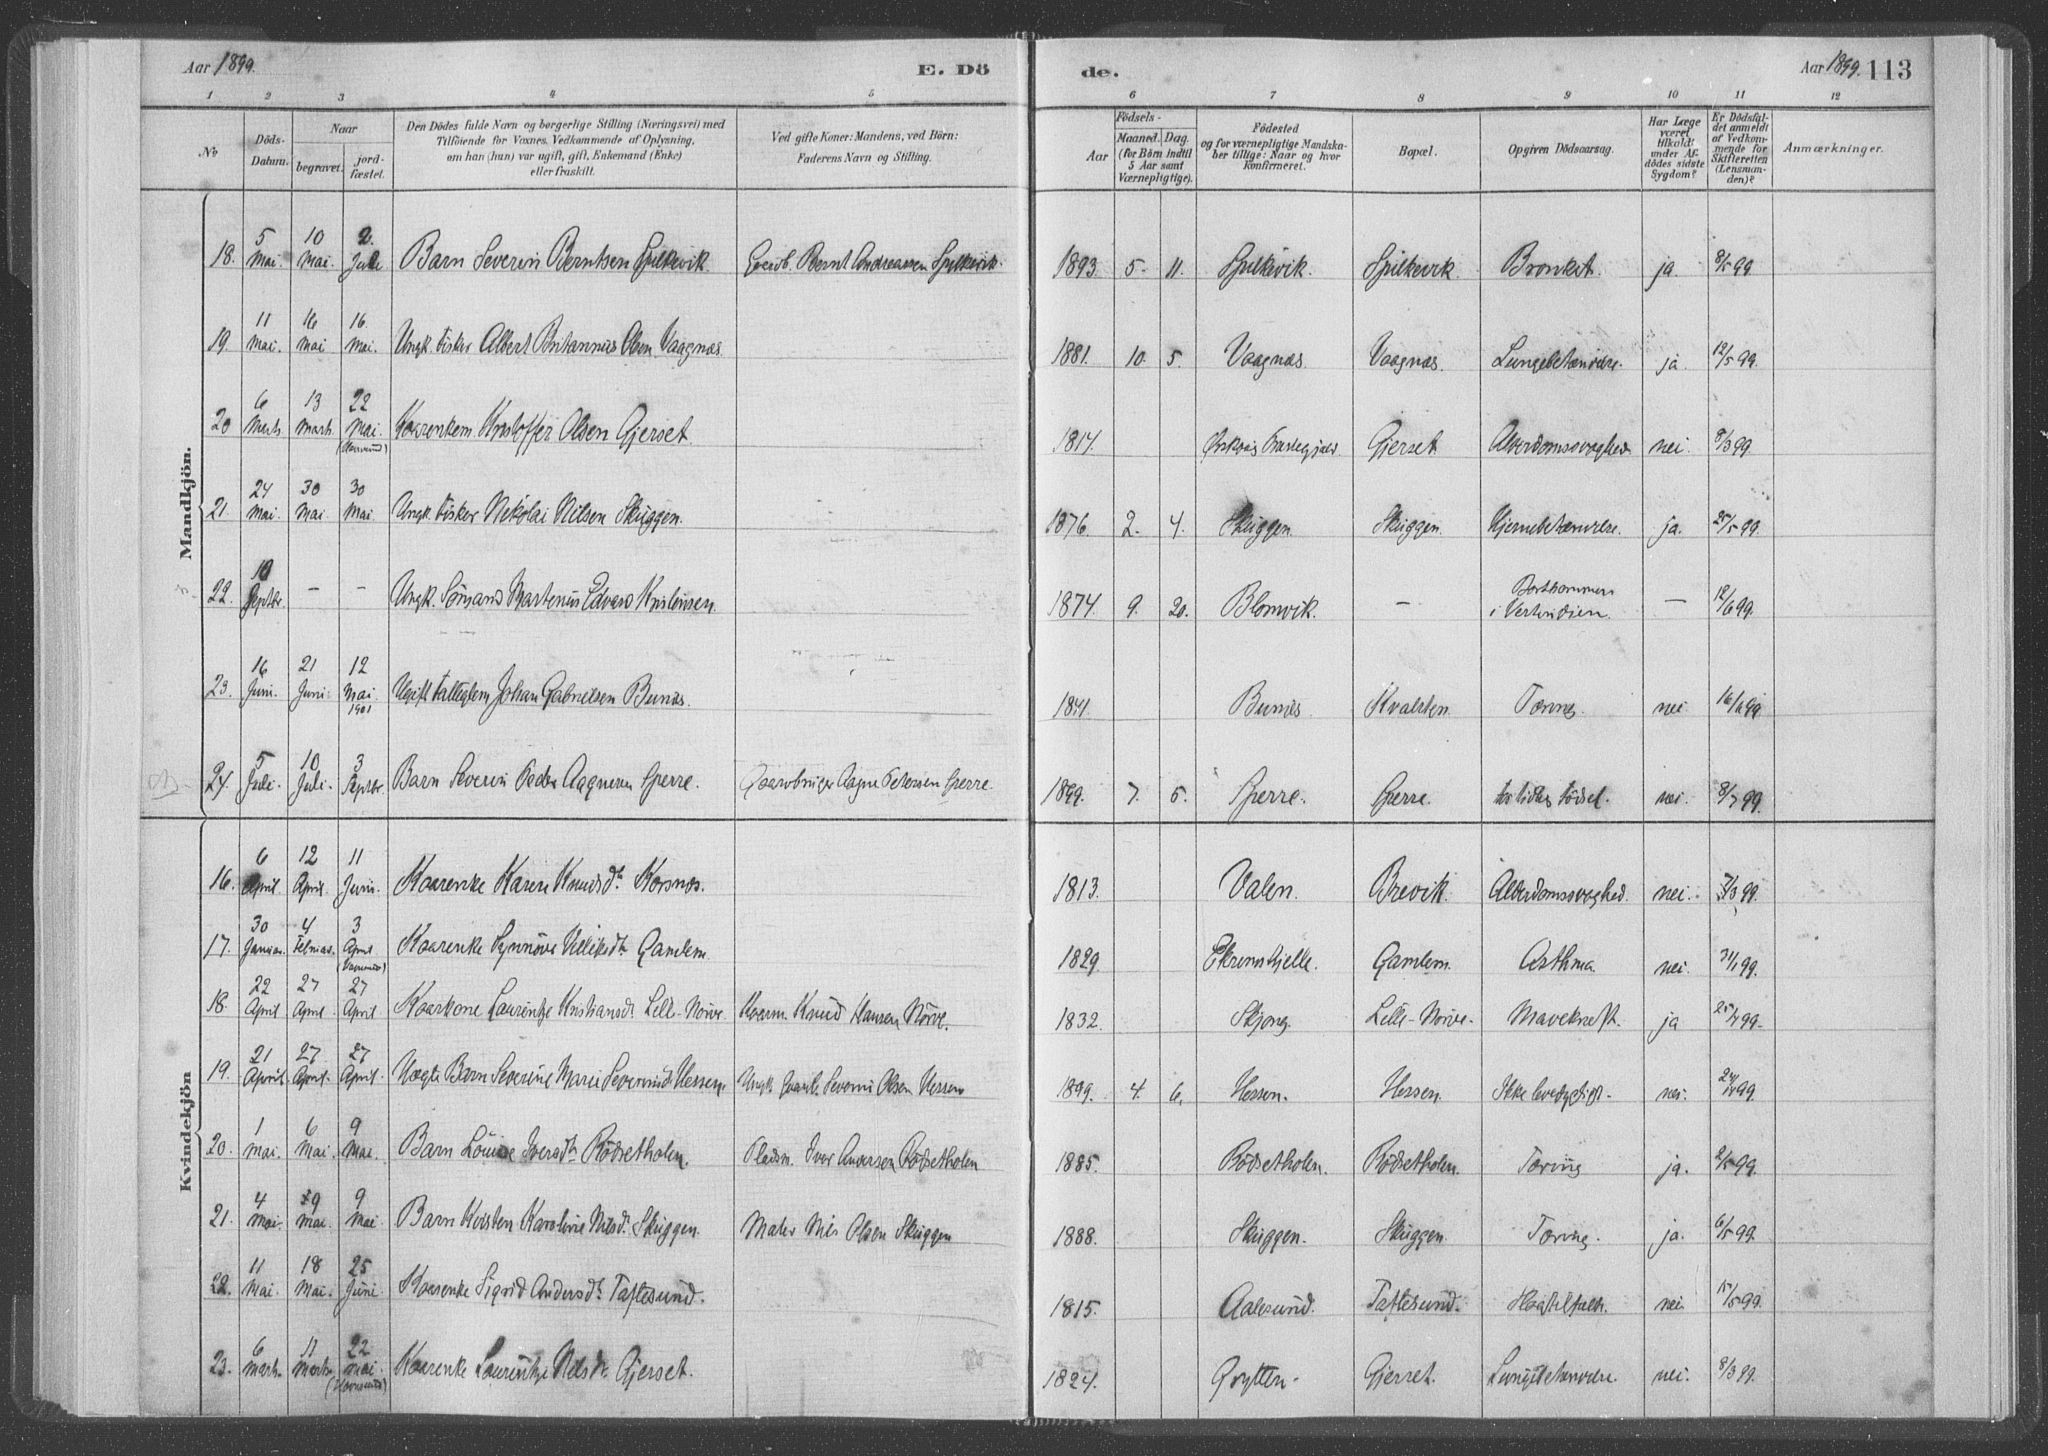 Aar 1899.
E. Dö
de.
Aar 1899. 113
1 2 3 4 5 6 7 8 9 10 11 12
No
Döds-Datum.
Naar
begravet.
jord-fæstet.
Den Dödes fulde Navn og borgerlige Stilling (Næringsvei) med
Tilföiende for Voxnes Vedkommende af Oplysning,
om han (hun) var ugift, gift, Enkemand (Enke)
eller fraskilt.
Ved gifte Koner: Mandens, ved Börn:
Faderens Navn og Stilling.
Födsels-
Aar
Maaned. Dag.
(for Börn indtil
5 Aar samt
Værnepligtige).
Födested
og for værnepligtige Mandska-
ber tillige: Naar og hvor
konfirmeret.
Bopæl.
Opgiven Dödsaarsag.
Har Læge
været
tilkaldt
under Af-
dödes sidste
Sygdom?
Er Dödsfal-
det anmeldt
af Vedkom-
mende for
Skifteretten
(Lensman-
den)?
Anmærkninger.
Mandkjön.
18. 5 Mai. 10 Mai. 2. Juli Barn Severin Berntsen Spilkevik. Bernt Andreassen Spilkevik. 1893. 5. 11. Spilkevik. Spilkevik. Bronkit. ja 8/5 99
19. 11 Mai. 16 Mai 16 Mai. Ungk. Fisker Albert Britannus Olsen Vaagnæs. 1881. 10. 5. Vaagnæs. Vaagnæs. Lungebetændelse. ja. 12/5 99.
20 6 Marts. 13 Marts. 22 Mai. Kaarenkem. Kristoffer Olsen Gjerset. 1814. Gjerset Alderdomssvaghed nei. 8/3 99.
21. 24 Mai. 30 Mai 30 Mai. Ungk. Fisker Nikolai Nilsen Skuggen. 1876. 2. 4. Skuggen. Skuggen. Hjernebetændelse. ja. 25/5 99.
22. 10 Septbr. – – Ungk. Sömand Martenius Edvard Kristensen. 1874. 9. 20. Blomvik. – Bortkommen i Vestindien. – 12/6 99.
23. 16 Juni. 21 Juni. 12 Mai. 1901 Ugift Fattiglem Johan Gabrielsen Bunæs. 1841. Bunæs Kvalsten. Tæring. nei 16/6 99
24. 5 Juli. 10 Juli. 3 Septbr. Barn Severin Peder Aagnesen Sperre. Gaardbruger Aagne Petersen Sperre. 1899. 7. 5. Sperre. Sperre. for tidlig Födsel. nei. 8/7 99.
Kvindekjön
16. 6 April 12 April. 11 Juni. Kaarenke Karen Knudsdt. Korsnæs. 1813. Valen. Brevik. Alderdomssvaghed. nei. 7/3 99.
17. 30 Januar. 4 Februar. 3 April Kaarenke Synnöve Gamlem. 1829. Ekremskjelle. Gamlem. Asthma. nei. 31/1 99.
18. 22 April 27 April. 27 April Kaarkone Laurentze Kristiansdt. Lille-Nörve. Kaarm. Knud Hansen Nörve. 1832. Skjong. Lille-Nörve. Mavekræft. ja 25/4 99.
19. 21 April 27 April. 27 April. Uægte Barn Severine Marie Severinsdt. Hessen Ungk. Severin Olsen Hessen 1899. 4. 6. Hessen. Hessen. Ikke levedygtigt. nei. 24/4 99.
20. 1 Mai. 6 Mai. 9 Mai. Barn Louise Iversdt. Rödsetholen. Pladsm. Iver Andersen Rödsetholen 1885. Rödsetholen. Rödsetholen. Tæring ja. 2/5 99.
21. 4 Mai. 9 Mai. 9 Mai Barn Kirsten Karoline Nilsdt. Skuggen. Maler Nils Olsen Skuggen 1888. Skuggen. Skuggen. Tæring. ja. 6/5 99.
22. 11 Mai. 18 Mai. 25 Juni Kaarenke Sigrid Andersdt. Taftesund. 1815. Aalesund. Taftesund. nei. 15/5 99.
23. 6 Marts. 11 Marts. 22 Mai. Kaarenke Laurentze Nilsdt. Gjerset. 1824. Grytten. Gjerset. Lungebetændelse. nei. 8/3 99.